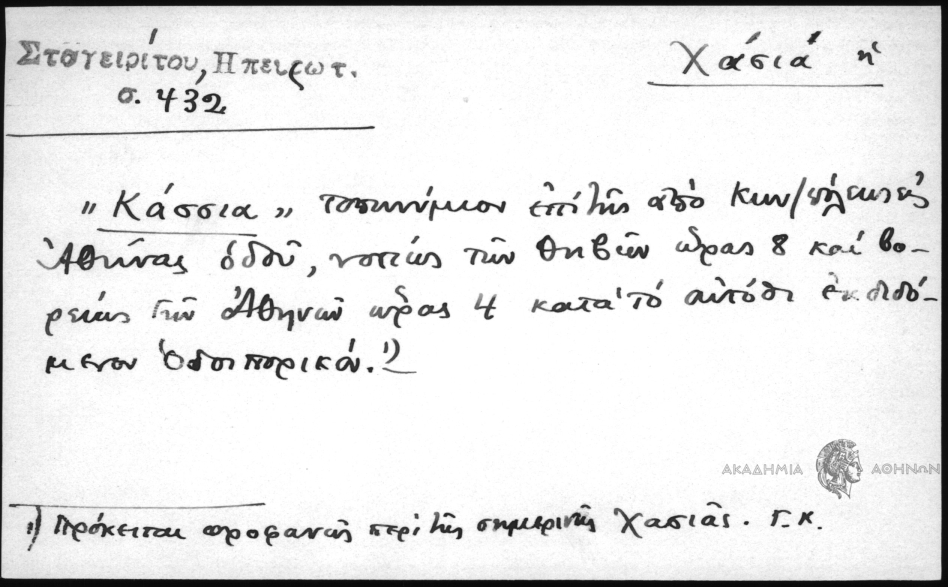 Σταγειρίτου, Ηπειρωτ.
σ. 432
Χάσιά ἡ
"Κάσσια" τοπωνύμιον ἐπί τῆς ἀπό Κων/πόλεως εἰς
Ἀθήνας ὁδοῦ, νοτίως τῶν Θηβῶν ὥρας 8 καί βο-
ρείως τῶν Ἀθηνῶν ὥρας 4 κατά τό αὐτόθι ἐκδιδό-
μενον Ὁδοιπορικόν.1)
ΑΚΑΔΗΜΙΑ ΑΘΗΝΩΝ
1) Πρόκειται προφανῶς περί τῆς σημερινῆς Χασιᾶς. Γ.Κ.